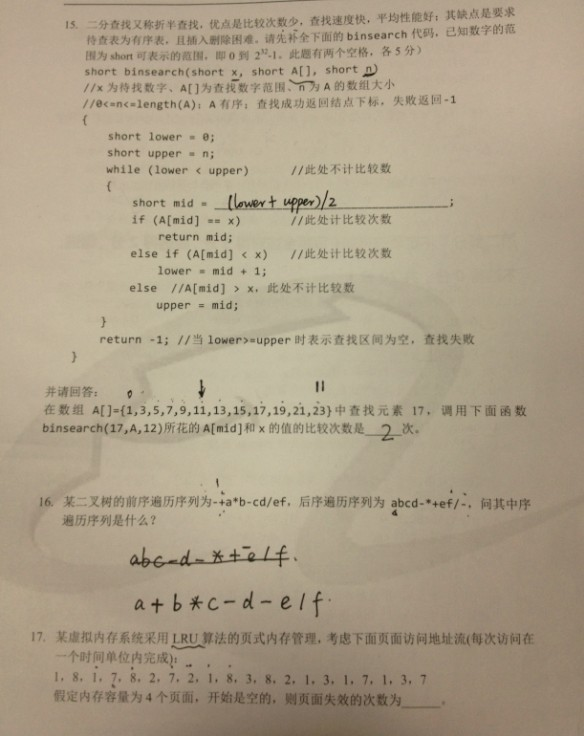 15. 二分查找又称折半查找，优点是比较次数少，查找速度快，平均性能好；其缺点是要求
待查表为有序表，且插入删除困难。请先补全下面的 binsearch 代码，已知数字的范
围为 short 可表示的范围，即 0 到 2³²-1。此题有两个空格，各 5 分）
short binsearch(short x, short A[], short n)
//x 为待找数字、A[]为查找数字范围、n 为 A 的数组大小
//0<=n<=length(A)；A 有序；查找成功返回结点下标，失败返回-1
{
short lower = 0;
short upper = n;
while (lower < upper) //此处不计比较数
{
short mid = (lower+upper)/2 ;
if (A[mid] == x) //此处计比较次数
return mid;
else if (A[mid] < x) //此处计比较次数
lower = mid + 1;
else //A[mid] > x，此处不计比较数
upper = mid;
}
return -1; //当 lower>=upper 时表示查找区间为空，查找失败
}
并请回答： 0 11
在数组 A[]={1,3,5,7,9,11,13,15,17,19,21,23}中查找元素 17，调用下面函数
binsearch(17,A,12)所花的 A[mid]和 x 的值的比较次数是 2 次。
16. 某二叉树的前序遍历序列为-+a*b-cd/ef，后序遍历序列为 abcd-*+ef/-，问其中序
遍历序列是什么？
abc-d-*+-e/f.
a+b*c-d-e/f.
17. 某虚拟内存系统采用 LRU 算法的页式内存管理，考虑下面页面访问地址流(每次访问在
一个时间单位内完成)：
1，8，1，7，8，2，7，2，1，8，3，8，2，1，3，1，7，1，3，7
假定内存容量为 4 个页面，开始是空的，则页面失效的次数为____。